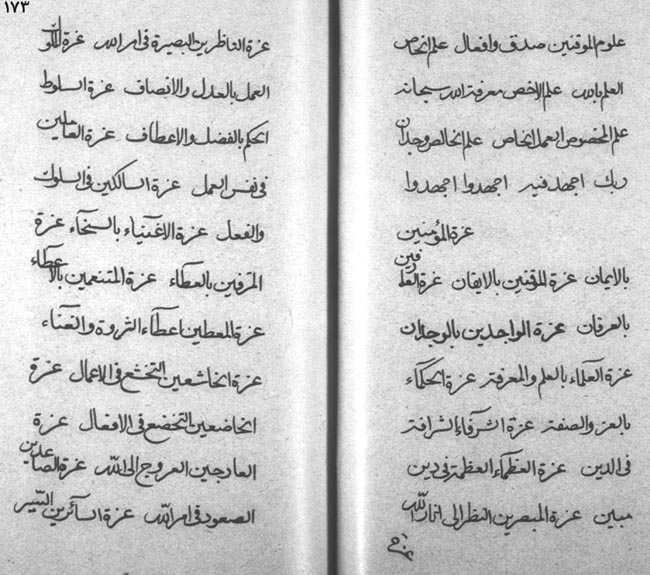 ١٧٣
علوم الموقنين صدق وافعال علم الخاص
العلم بالله علم الاخص معرفة الله سبحانه
علم المخصوص العمل الخاص علم الخالص وجدان
ربك اجهد فيه اجهدوا اجهدوا
عزة المؤمنين
بالايمان عزة الموقنين بالايقان عزة العارفين
بالعرفان عزة الواجدين بالوجدان
عزة العلماء بالعلم والمعرفة عزة الحكماء
بالعز والصفة عزة الشرفاء الشرافة
فى الدين عزة العظماء العظمة فى دين
مبين عزة المبصرين النظر الى اثار الله
عزة
عزة الناظرين البصيرة فى امر الله عزة الملوك
العمل بالعدل والانصاف عزة السلوط
الحكم بالفضل والاعطاف عزة العاملين
فى نفس العمل عزة السالكين فى السلوك
والفعل عزة الاغنياء بالسخاء عزة
المترفين بالعطاء عزة المتنعمين بالاعطاء
عزة المعطين اعطاء الثروة والغناء
عزة الخاشعين التخشع فى الاعمال عزة
الخاضعين التخضع فى الافعال عزة
العارجين العروج الى الله عزة الصاعدين
الصعود فى امر الله عزة السآئرين السير